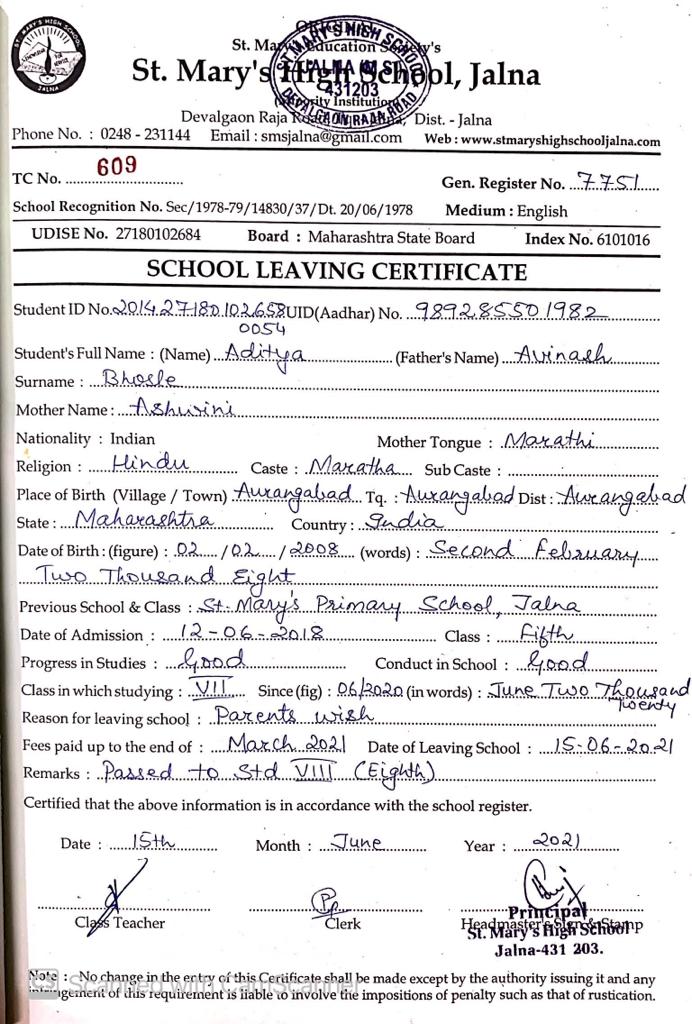 ST. MARY'S HIGH SCHOOL
JALNA
ORIGINAL
St. Mary's Education Society's
St. Mary's High School, Jalna
(Minority Institution)
Devalgaon Raja Road, Jalna, Dist. - Jalna
ST. MARY'S HIGH SCHOOL
JALNA (M.S.)
431203
DEVALGAON RAJA ROAD
Phone No. : 0248 - 231144 Email : smsjalna@gmail.com Web : www.stmaryshighschooljalna.com
TC No. 609
Gen. Register No. 7751
School Recognition No. Sec/1978-79/14830/37/Dt. 20/06/1978 Medium : English
UDISE No. 27180102684 Board : Maharashtra State Board Index No. 6101016
SCHOOL LEAVING CERTIFICATE
Student ID No. 2014 27180 102658 UID(Aadhar) No. 989285501982
0054
Student's Full Name : (Name) Aditya (Father's Name) Avinash
Surname : Bhosle
Mother Name : Ashwini
Nationality : Indian Mother Tongue : Marathi
Religion : Hindu Caste : Maratha Sub Caste :
Place of Birth (Village / Town) Aurangabad Tq. : Aurangabad Dist : Aurangabad
State : Maharashtra Country : India
Date of Birth : (figure) : 02 / 02 / 2008 (words) : Second February
Two Thousand Eight
Previous School & Class : St. Mary's Primary School, Jalna
Date of Admission : 12-06-2018 Class : Fifth
Progress in Studies : Good Conduct in School : Good
Class in which studying : VII Since (fig) : 06/2020 (in words) : June Two Thousand
Twenty
Reason for leaving school : Parents wish
Fees paid up to the end of : March 2021 Date of Leaving School : 15-06-2021
Remarks : Passed to Std VIII (Eighth)
Certified that the above information is in accordance with the school register.
Date : 15th Month : June Year : 2021
Class Teacher Clerk Headmaster's Sign & Stamp
Principal
St. Mary's High School
Jalna-431 203.
Note : No change in the entry of this Certificate shall be made except by the authority issuing it and any
infringement of this requirement is liable to involve the impositions of penalty such as that of rustication.
CS Scanned with CamScanner